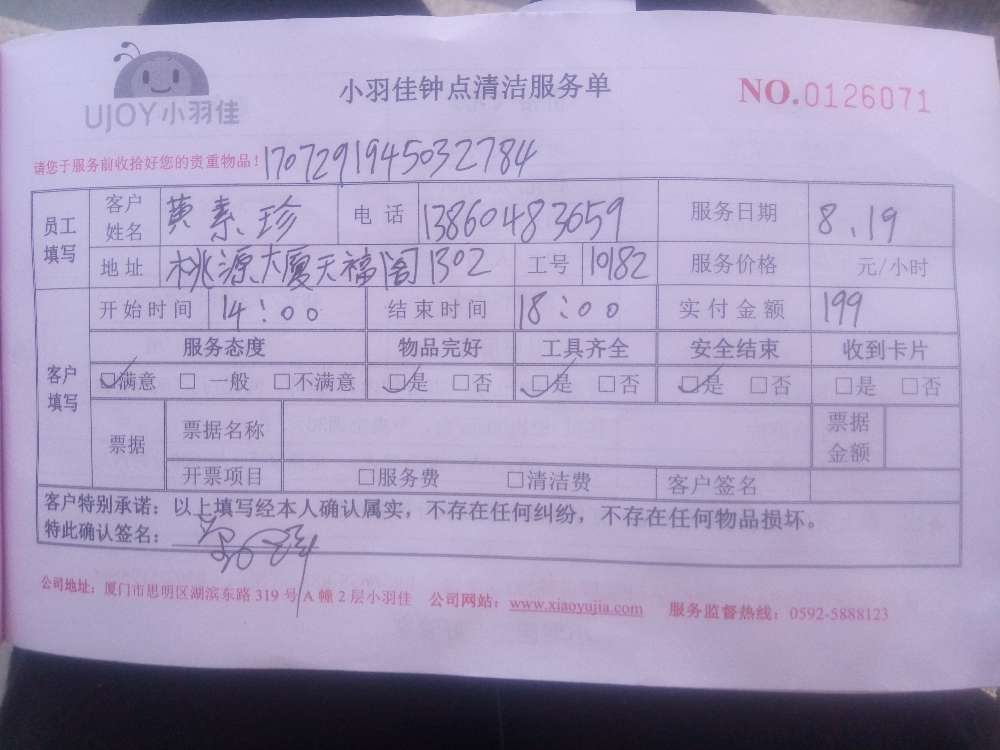 UJOY小羽佳
小羽佳钟点清洁服务单
NO.0126071
请您于服务前收拾好您的贵重物品！ 1707291945032784
员工填写 客户姓名 黄素珍 电话 13860483659 服务日期 8.19
地址 桃源大厦天福阁1302 工号 10182 服务价格 元/小时
客户填写 开始时间 14:00 结束时间 18:00 实付金额 199
服务态度 物品完好 工具齐全 安全结束 收到卡片
☑满意 □一般 □不满意 ☑是 □否 ☑是 □否 ☑是 □否 □是 □否
票据 票据名称 票据金额
开票项目 □服务费 □清洁费 客户签名
客户特别承诺：以上填写经本人确认属实，不存在任何纠纷，不存在任何物品损坏。
特此确认签名：
公司地址：厦门市思明区湖滨东路319号A幢2层小羽佳 公司网站：www.xiaoyujia.com 服务监督热线：0592-5888123